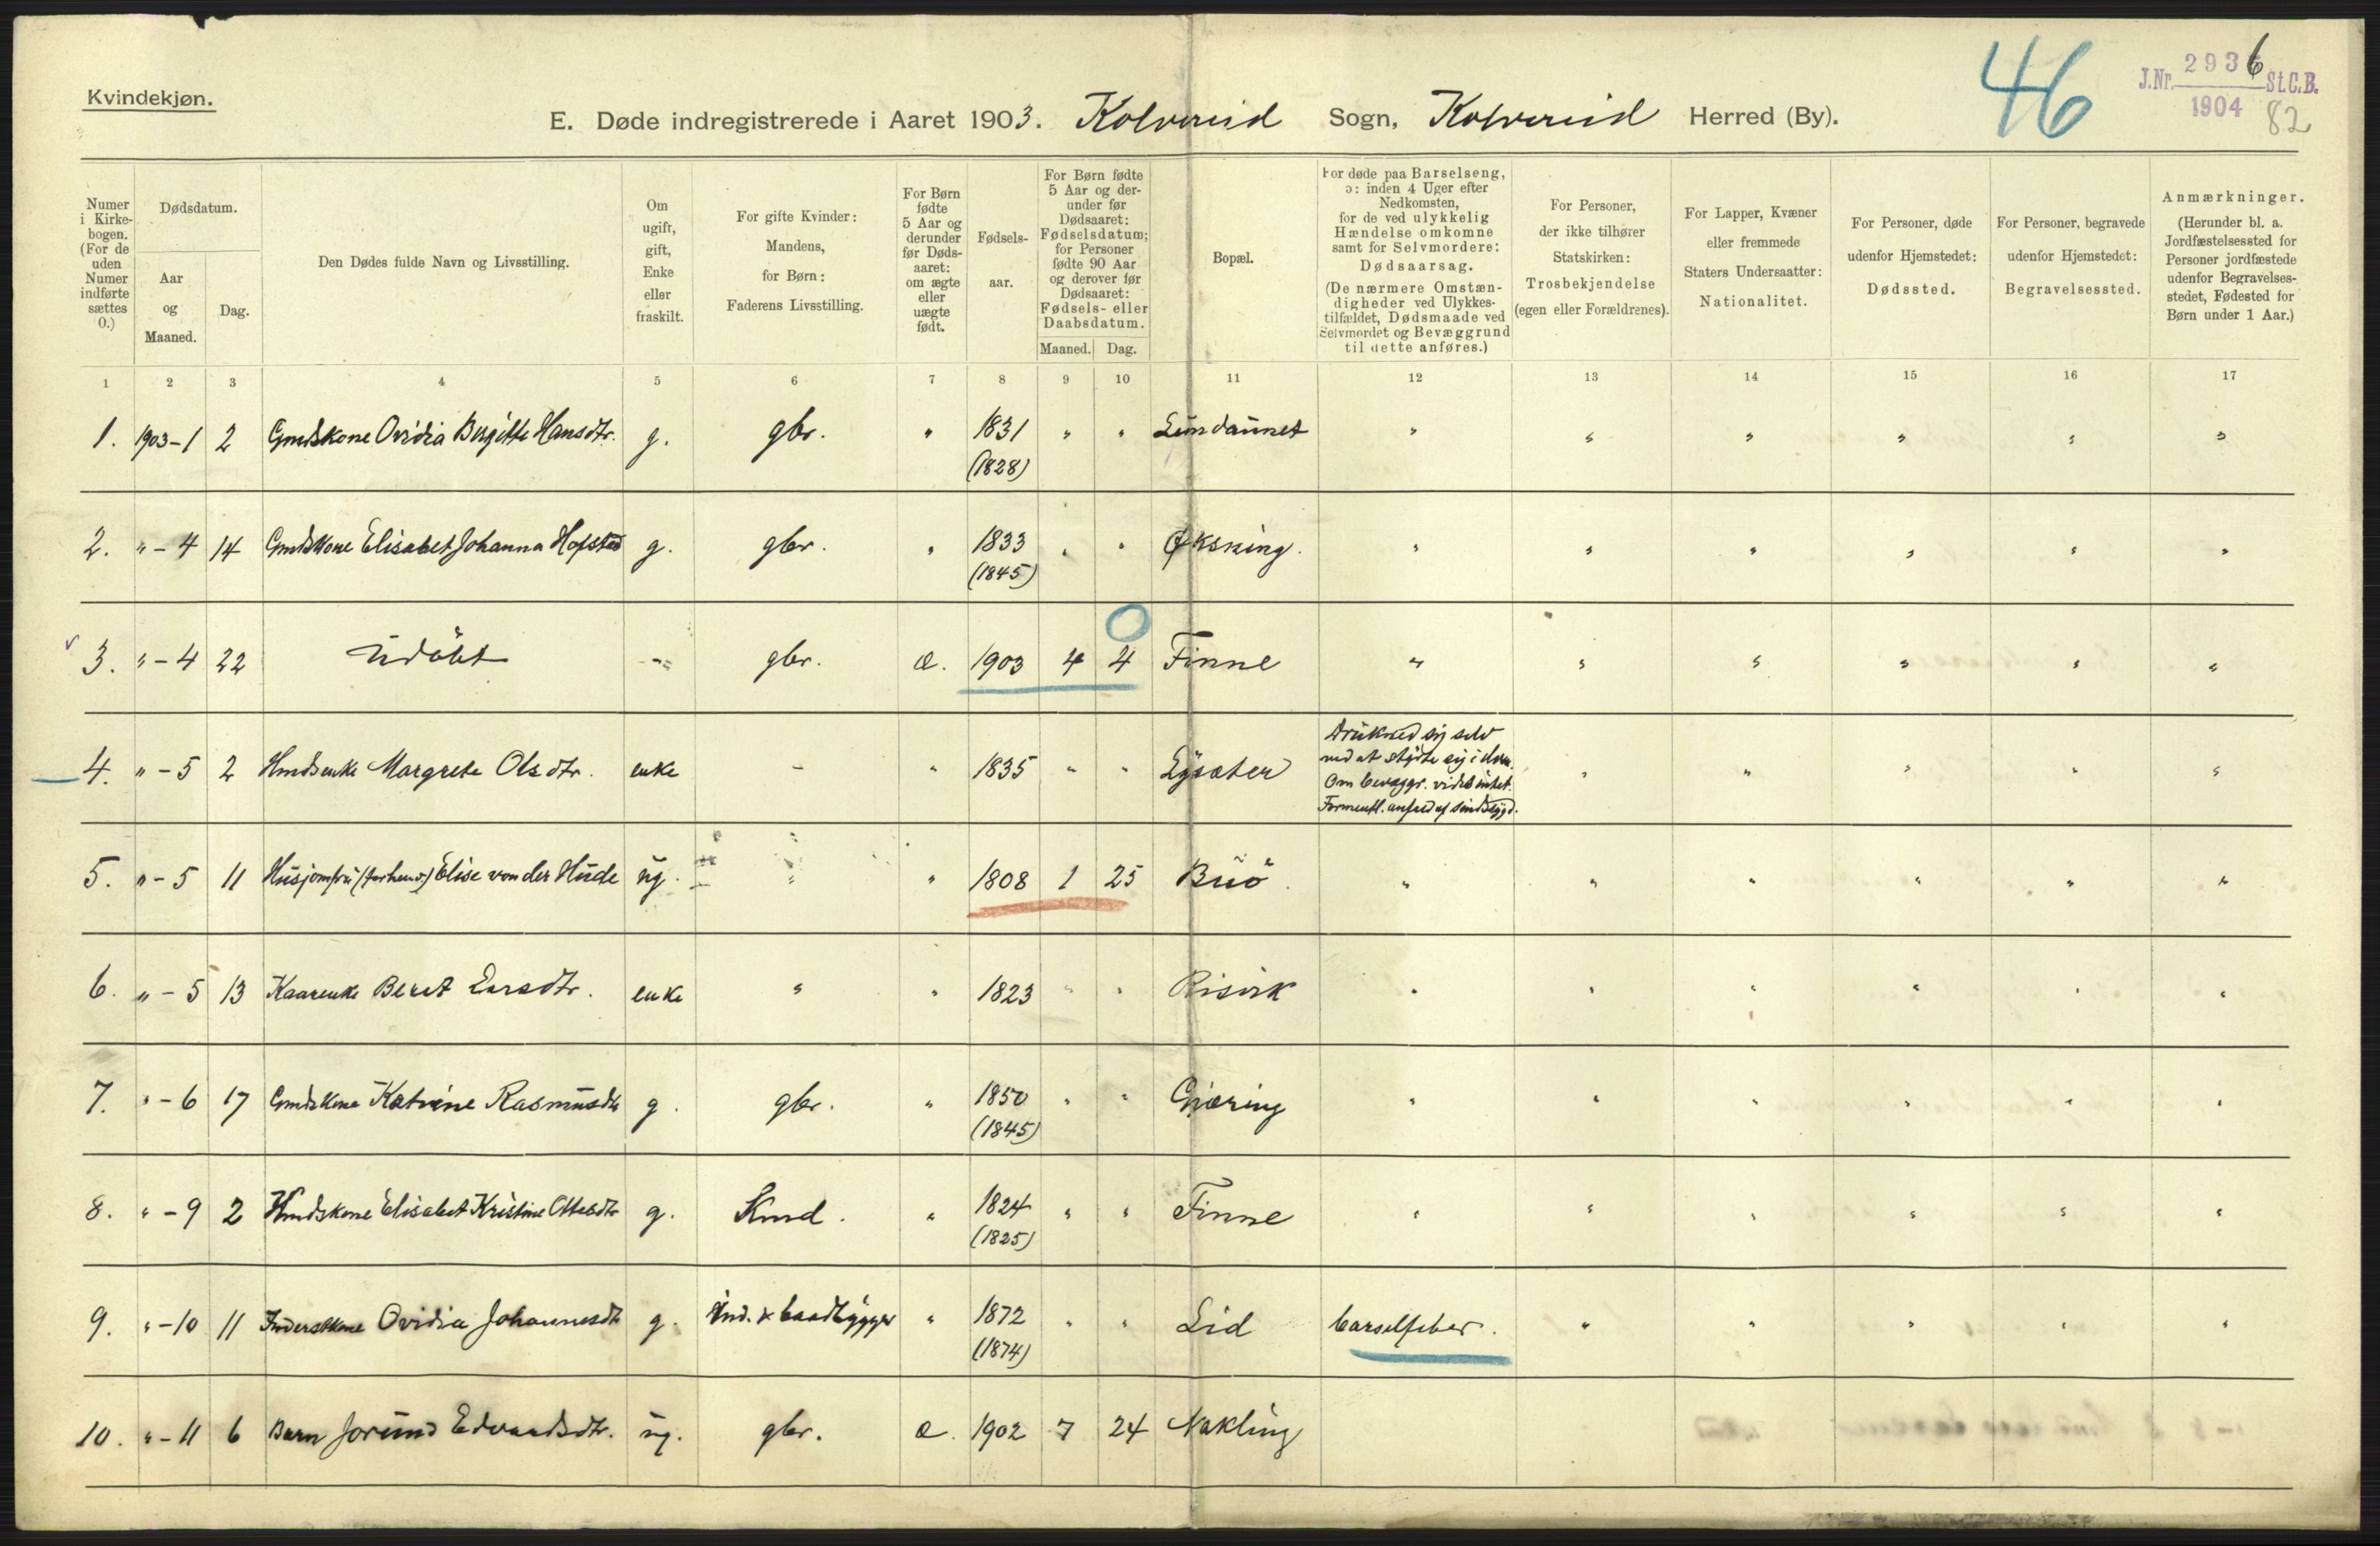 Kvindekjøn.
E. Døde indregistrerede i Aaret 1903. Kolvereid Sogn, Kolvereid Herred (By).
46
J.Nr. 2936 St.C.B.
1904
82
Numer i Kirkebogen. (For de uden Numer indførte sættes 0.)
Dødsdatum.
Aar og Maaned.
Dag.
Den Dødes fulde Navn og Livsstilling.
Om ugift, gift, Enke eller fraskilt.
For gifte Kvinder: Mandens, for Børn: Faderens Livsstilling.
For Børn fødte 5 Aar og derunder før Dødsaaret: om ægte eller uægte født.
Fødselsaar.
For Børn fødte 5 Aar og derunder før Dødsaaret: Fødselsdatum; for Personer fødte 90 Aar og derover før Dødsaaret: Fødsels- eller Daabsdatum.
Maaned. Dag.
Bopæl.
For døde paa Barselseng, ɔ: inden 4 Uger efter Nedkomsten, for de ved ulykkelig Hændelse omkomne samt for Selvmordere: Dødsaarsag. (De nærmere Omstændigheder ved Ulykkestilfældet, Dødsmaade ved Selvmordet og Bevæggrund til dette anføres.)
For Personer, der ikke tilhører Statskirken: Trosbekjendelse (egen eller Forældrenes).
For Lapper, Kvæner eller fremmede Staters Undersaatter: Nationalitet.
For Personer, døde udenfor Hjemstedet: Dødssted.
For Personer, begravede udenfor Hjemstedet: Begravelsessted.
Anmærkninger. (Herunder bl. a. Jordfæstelsessted for Personer jordfæstede udenfor Begravelsesstedet, Fødested for Børn under 1 Aar.)
1 2 3 4 5 6 7 8 9 10 11 12 13 14 15 16 17
1. 1903-1 2 Gmdskone Ovidia Birgitte Hansdtr. g. gbr. " 1831 " " Lundaunet " " " " " "
(1828)
2. "-4 14 Gmdskone Elisabet Johanna Hofstad g. gbr. " 1833 " " Øksning. " " " " " "
(1845)
3. "-4 22 Udøbt -"- gbr. æ. 1903 4 4 0 Finne " " " " " "
4. "-5 2 Hmdsenke Margrete Olsdtr. enke - " 1835 " " Lysæter Drukned sig selv
ved at styrte sig i elven.
Om bevæggr. vides intet.
Formentl. anfald af sindssygd. " " " " "
5. "-5 11 Husjomfru (forhenv.) Elise von der Hude ug. " " 1808 1 25 Buö. " " " " " "
6. "-5 13 Kaarenke Beret Larsdtr. enke " " 1823 " " Risvik " " " " " "
7. "-6 17 Gmdskone Katrine Rasmusdtr g. gbr. " 1850 " " Gjæring " " " " " "
(1845)
8. "-9 2 Hmdskone Elisabet Kristine Ottesdtr g. Hmd. " 1824 " " Finne " " " " " "
(1825)
9. "-10 11 Inderstkone Ovidia Johannesdtr g. Ind. & baadbygger " 1872 " " Lid barselfeber. " " " " "
(1874)
10. "-11 6 Barn Jorund Edvardsdtr. ug. gbr. æ. 1902 7 24 Nakling